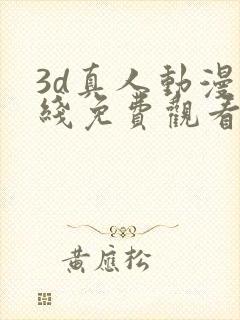 3d真人動漫
綫免費觀看
黃應松